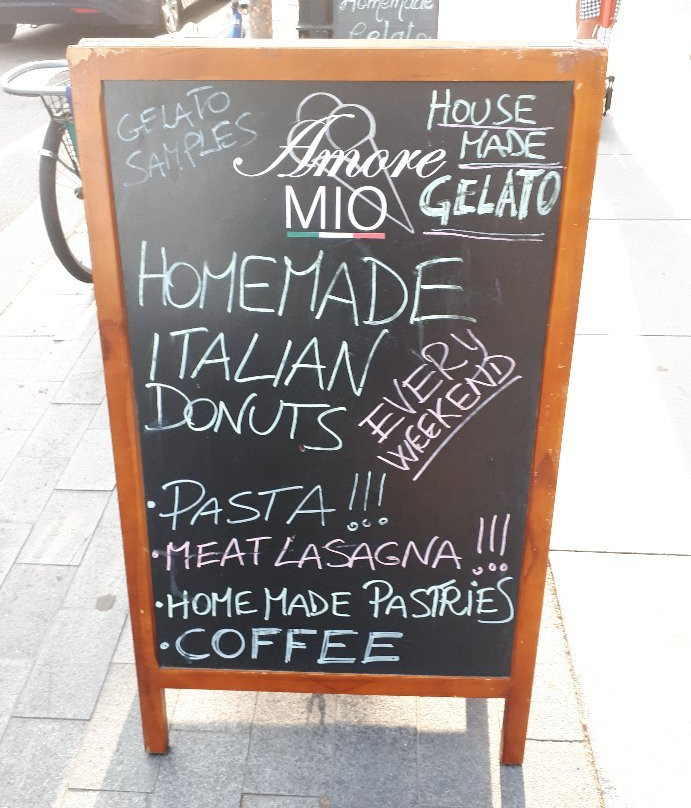 Homemade
Gelato
GELATO
SAMPLES
Amore
MIO
HOUSE
MADE
GELATO
HOMEMADE
ITALIAN
DONUTS
EVERY
WEEKEND
•PASTA!!!
•MEAT LASAGNA!!!
•HOMEMADE PASTRiES
•COFFEE